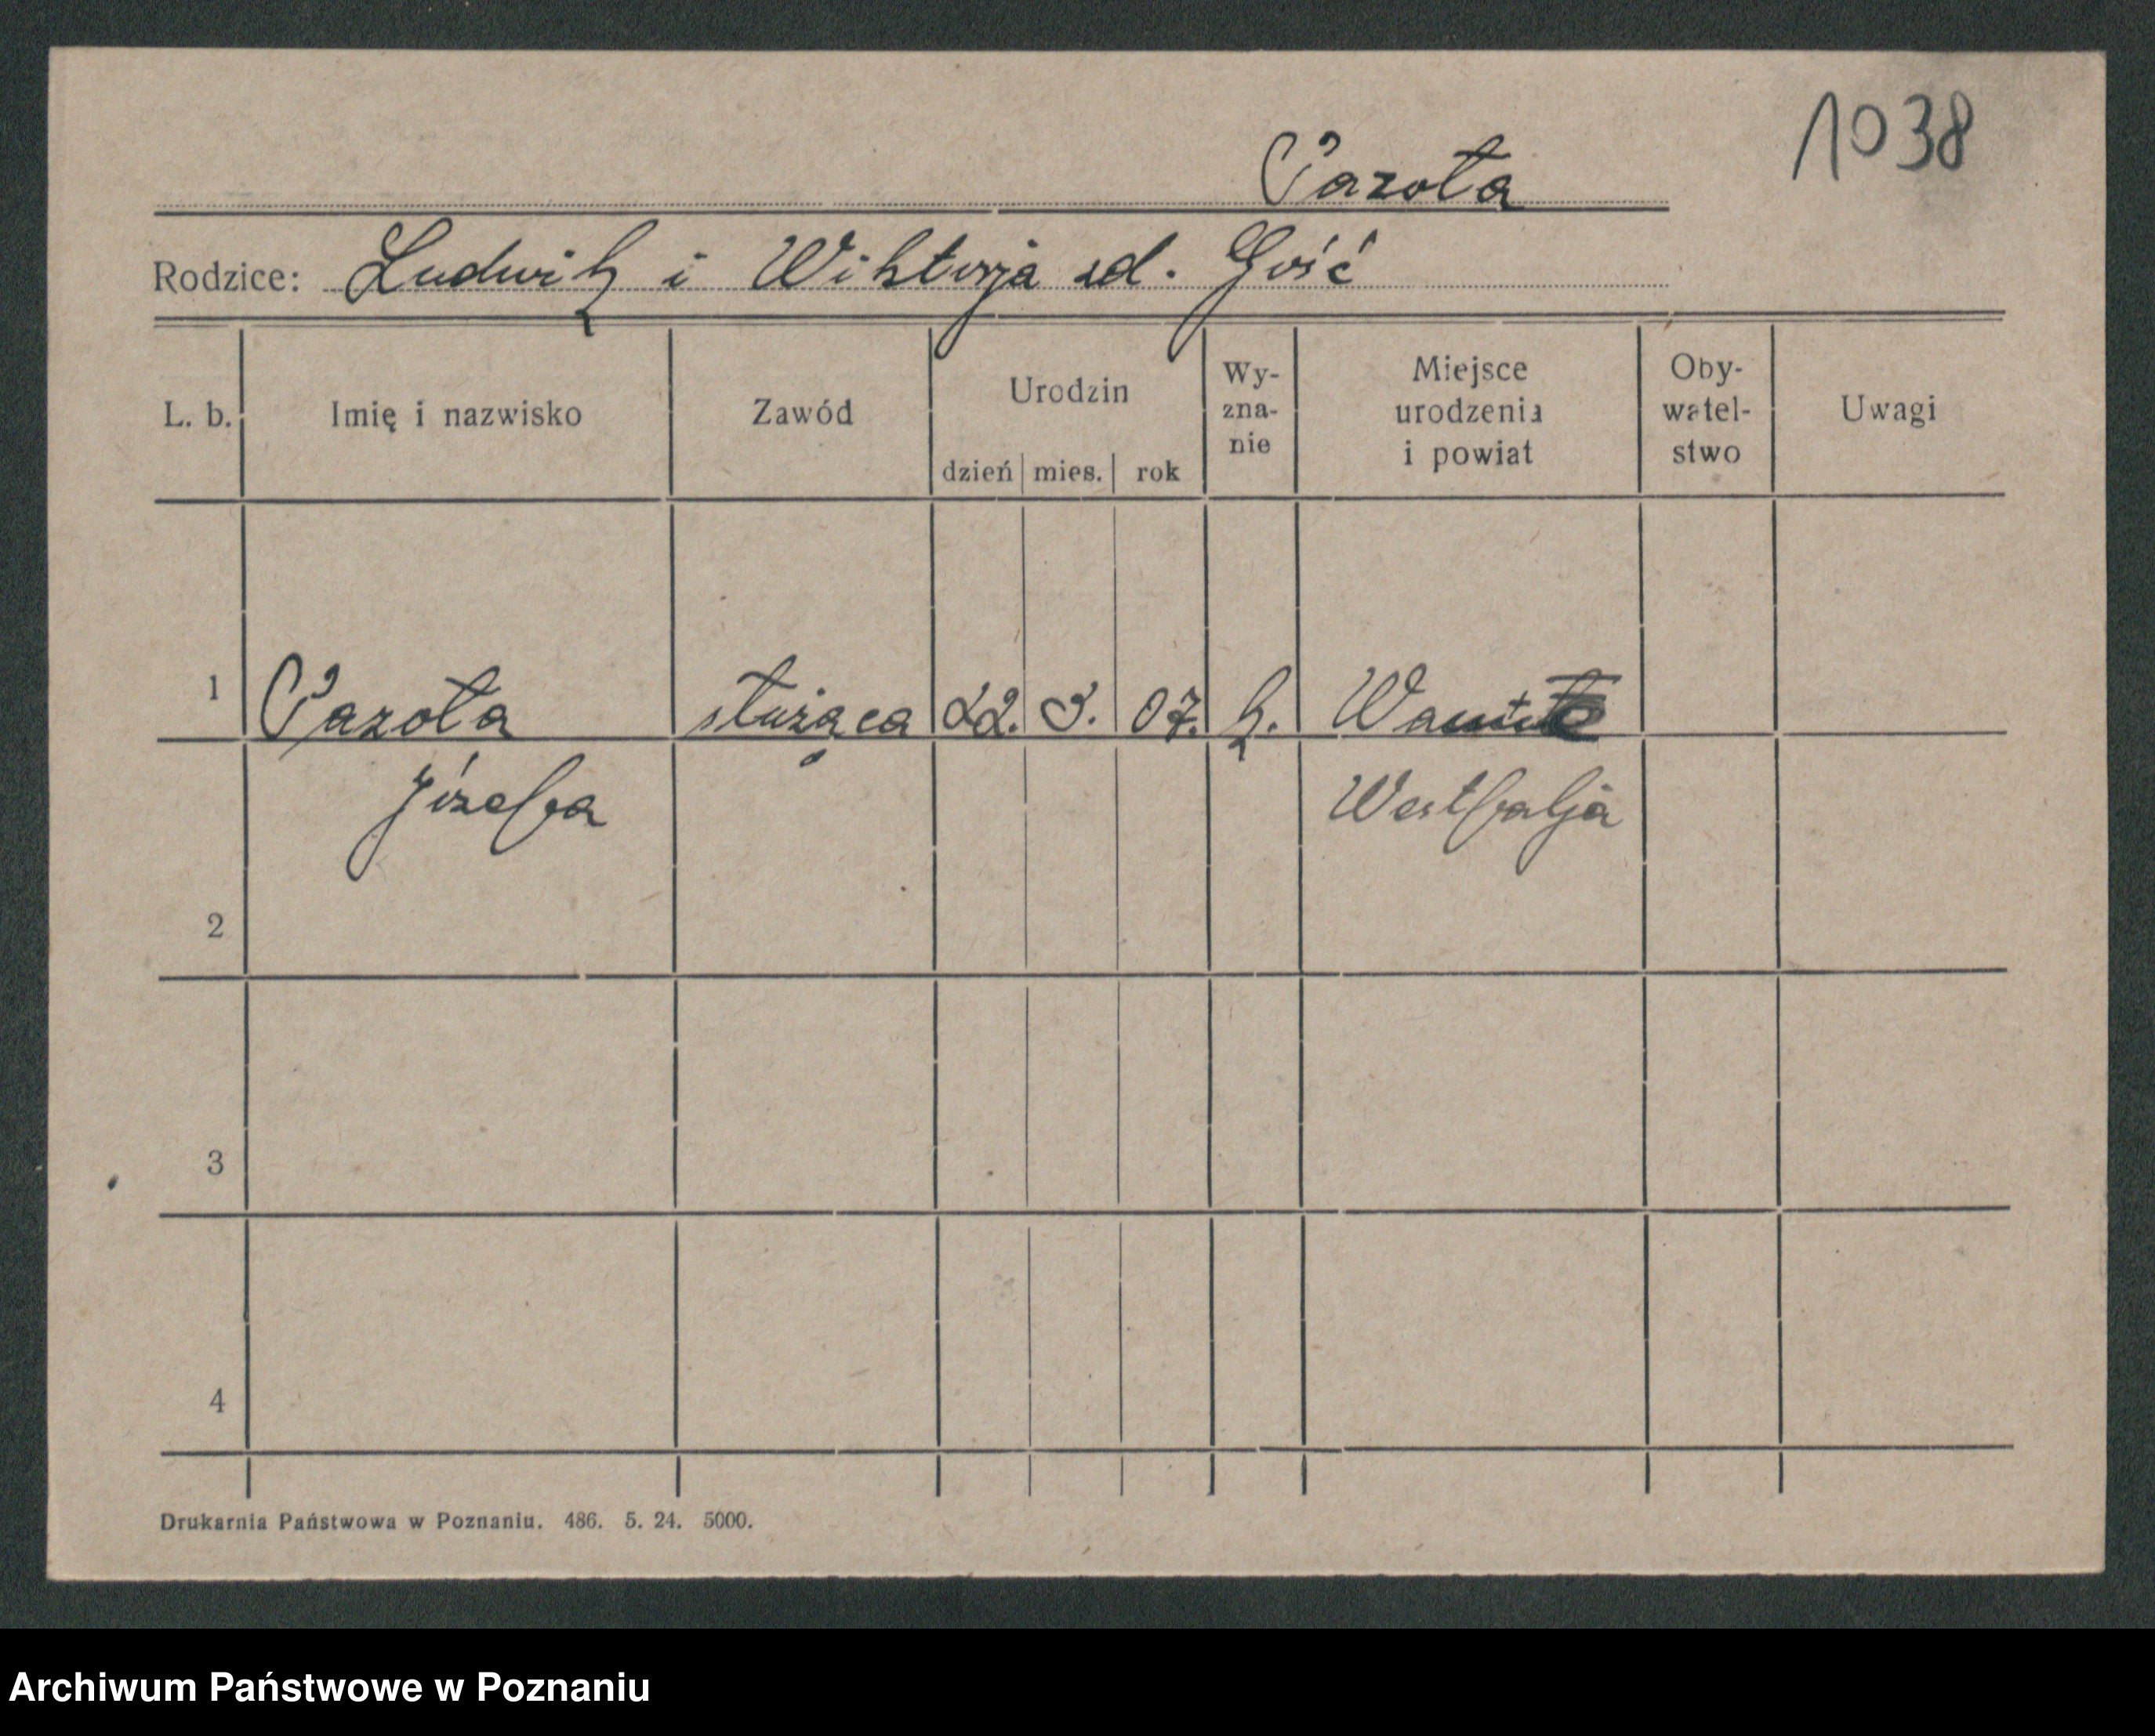 1038
Pazoła
Rodzice: Ludwik i Wiktorja zd. Gość
L. b. Imię i nazwisko Zawód Urodzin dzień mies. rok Wy-zna-nie Miejsce urodzenia i powiat Oby-watel-stwo Uwagi
1 Pazoła służąca 22. 3. 07. k.
Józefa Westfalja
2
3
4
Drukarnia Państwowa w Poznaniu. 486. 5. 24. 5000.
Archiwum Państwowe w Poznaniu